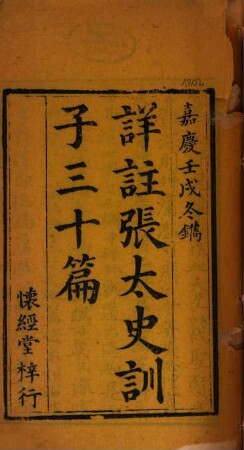 1802
嘉慶壬戌冬鐫
詳註張太史訓
子三十篇
懷經堂梓行